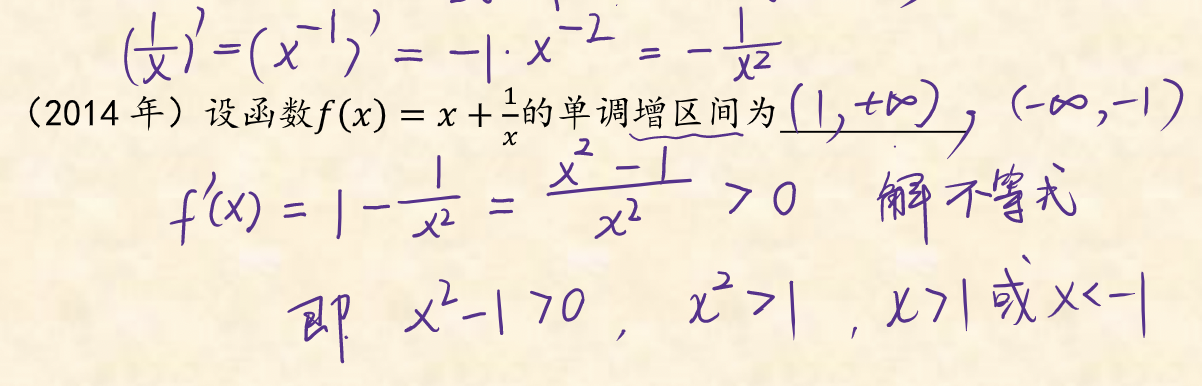 (1/x)' = (x^{-1})' = -1·x^{-2} = -1/x²
（2014 年）设函数f(x) = x + 1/x的单调增区间为(1,+∞)，(-∞,-1)
f'(x) = 1 - 1/x² = (x² - 1)/x² > 0 解不等式
即 x²-1>0， x²>1 ，x>1 或 x<-1